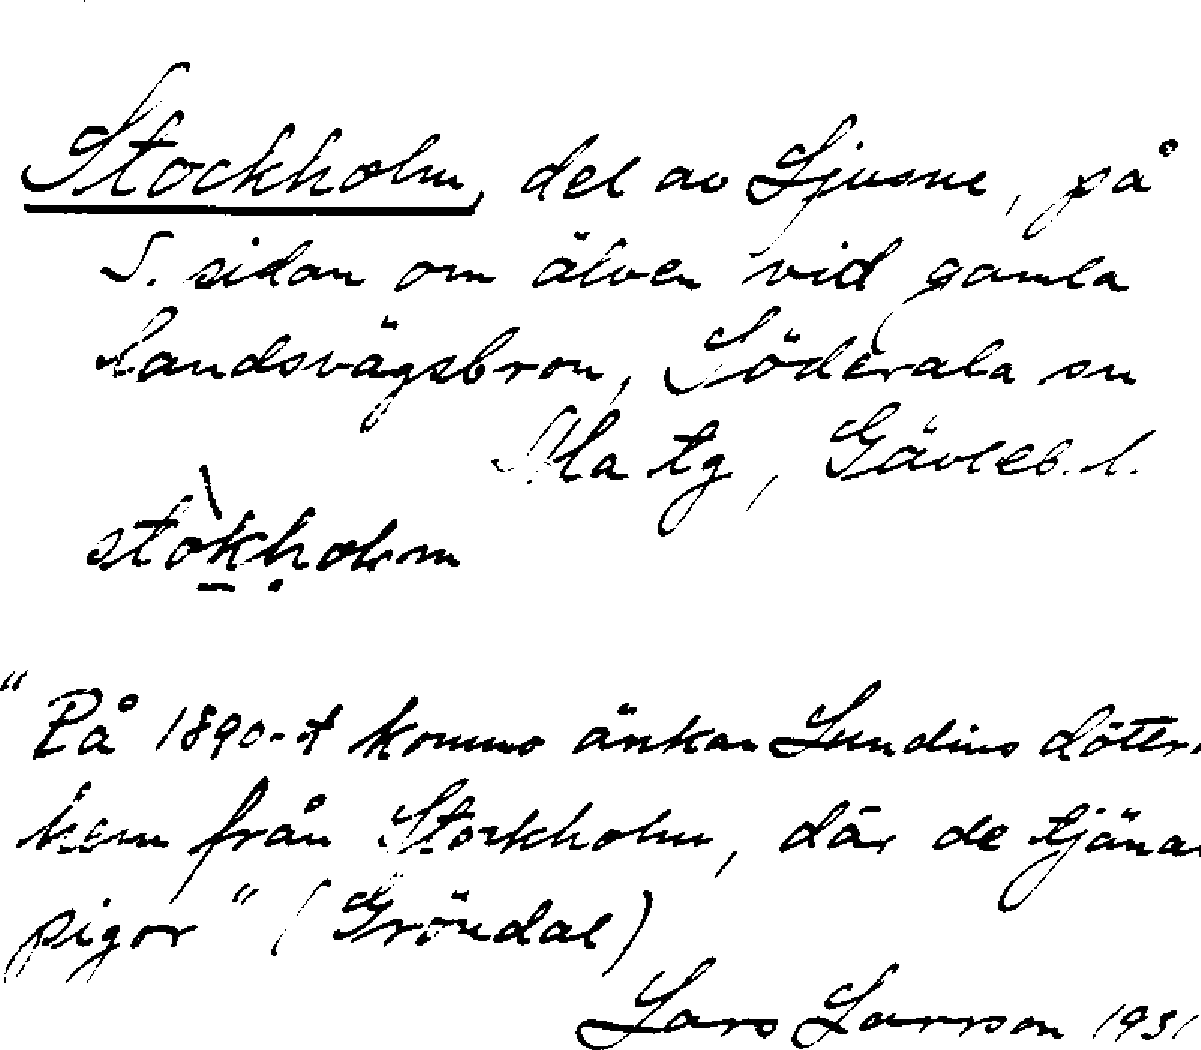 Stockholm, del av Ljusne, på
S. sidan om älven vid gamla
landsvägsbron, Söderala sn
Ala tg, Gävleb. l.
stòkholm
"På 1890-t kommo änkan Lundins döttr
hem från Stockholm, där de tjäna
pigor" (Gröndal)
Lars Larsson 1931